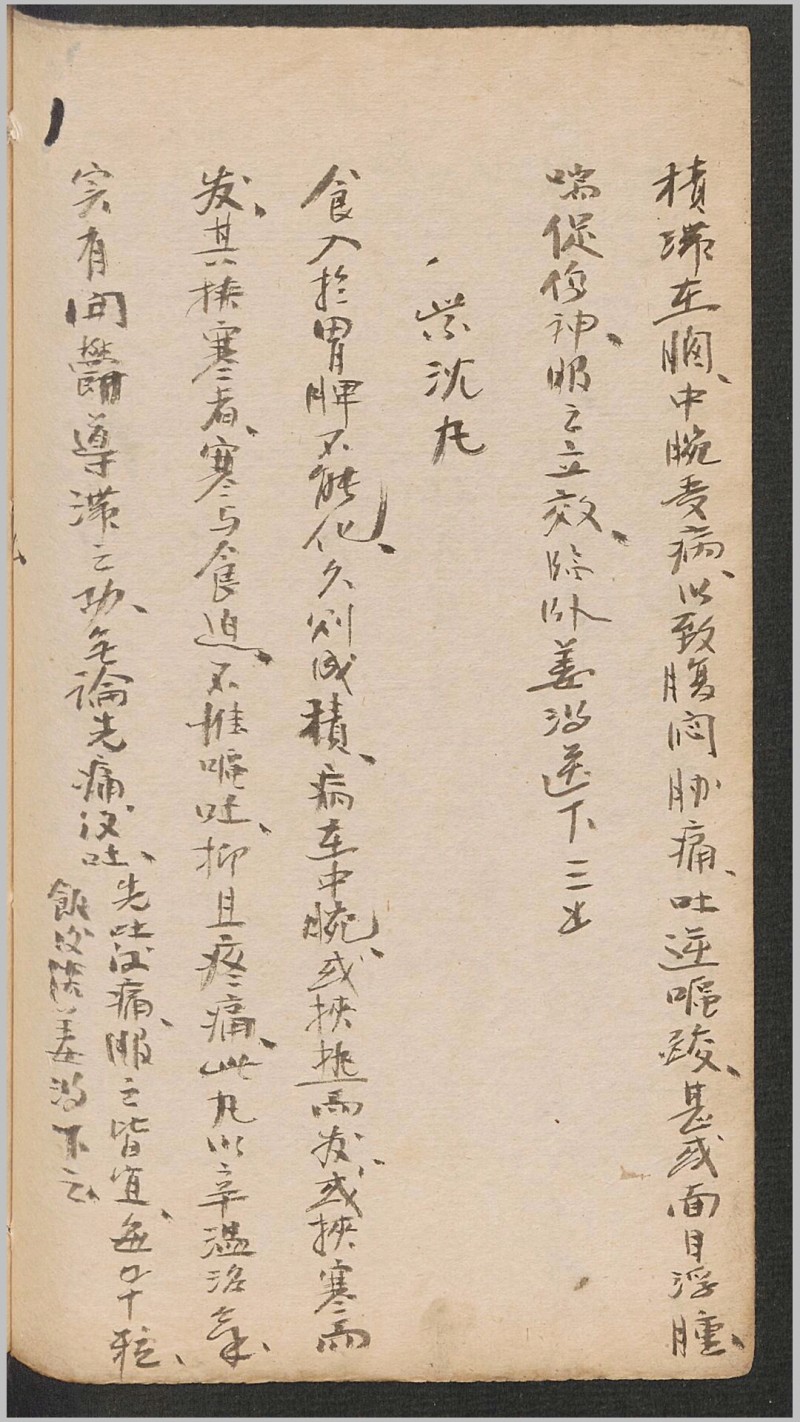 積滯在胸、中脘受病、以致腹悶胁痛、吐逆嘔酸、甚或面目浮腫、
喘促傷神、服之立效、臨卧姜湯送下三十
紫沈丸
食入於胃脾不能化、久则成積、病在中脘、或挾熱而发、或挾寒而
发、其挾寒者、寒与食迫、不惟嘔吐、抑且疼痛、此丸以辛温治氣、
实有開鬱導滯之功、無論先痛後吐、
先吐後痛、服之皆宜、每早十粒、
飯後淡姜湯下云